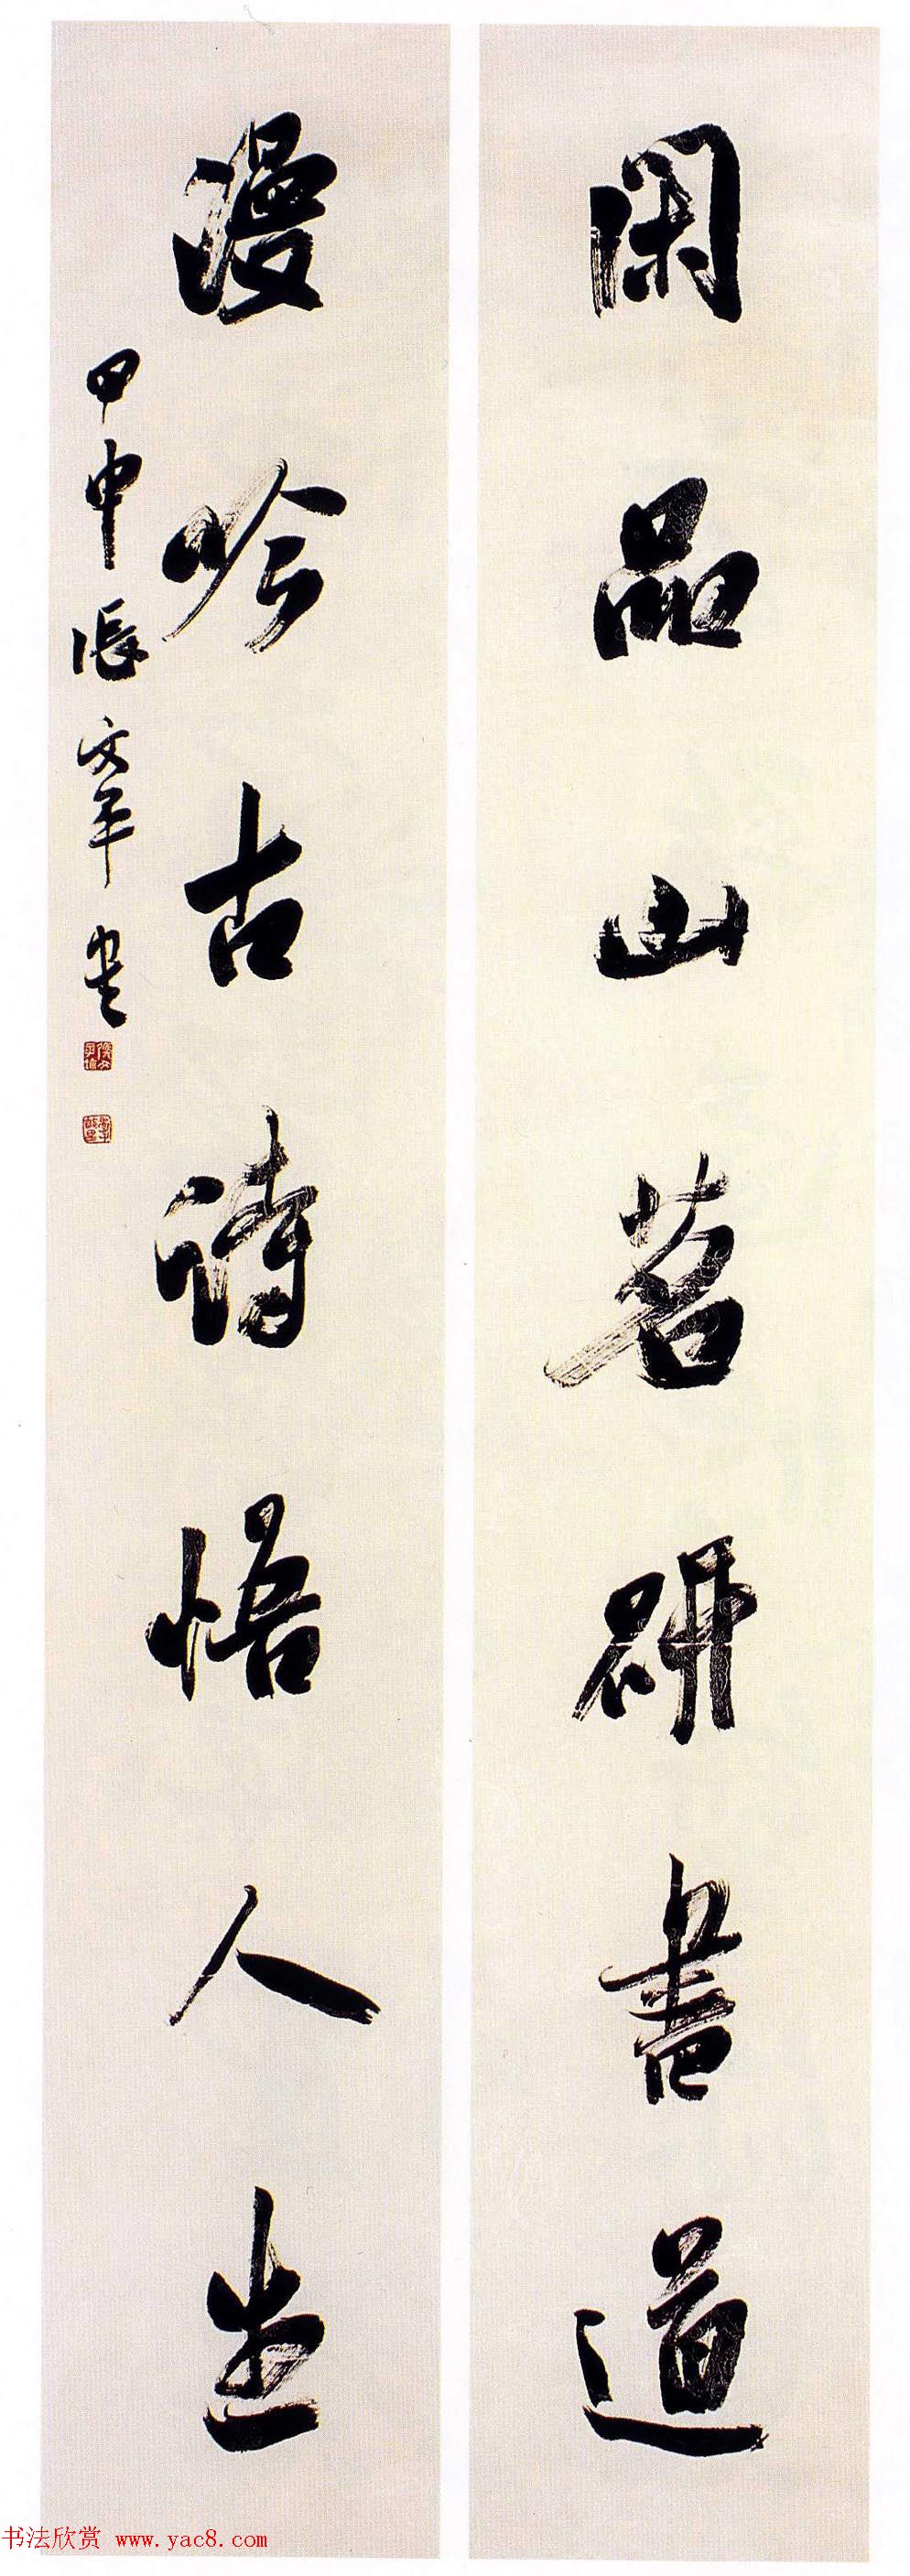 閑品山茗研書道
漫吟古詩悟人生
甲申張文平書
书法欣赏 www.yac8.com